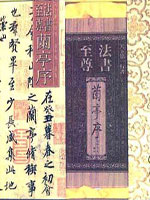 法書
至尊
蘭亭序
蘭亭序
在癸丑暮春之初會
之蘭亭脩稧事
也羣賢畢至少長咸集此地